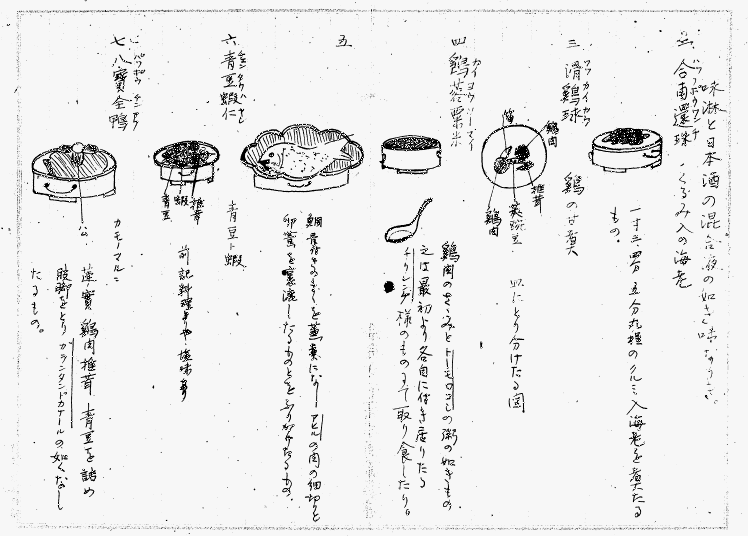 味淋と日本酒の混合液の如き味なりき。
ハフボウワンチ
二、合南還珠、くるみ入の海老
一寸三、四分 五分丸程のクルミ入海老を煮たる
もの。
ワッカイカウ
三、滑鷄球 鷄の甘煮
鷄肉
椎茸
筍
英豌豆
鷄肉
皿にとり分けたる図
カイヨウソーマイ
四、鷄蓉粟米
鷄肉のきざみとトーモロコシの粥の如きもの
之は最初より各自に付き居りたる
チリレンゲ様のものにて取り食したり。
五、
鯛骨付きのまゝを蒸煮になしアヒルの肉の細切と
卵黄を裏漉したるものとをふりかけたるもの。
六、青豆蝦仁 青豆ト蝦
椎茸
蝦
青豆
前記料理よりやや塩味あり
ハッポウチンヤウ
七、八寶全鴨
ハム
カモーマルニ
蓮實 鷄肉 椎茸 青豆を詰め
股脚をとりガランタンドカナールの如くなし
たるもの。